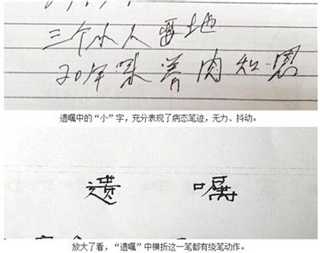 三个小人要地
20年来养肉知恩
遗嘱中的“小”字，充分表现了病态笔迹，无力、抖动。
遺嘱
放大了看，“遗嘱”中横折这一笔都有绕笔动作。